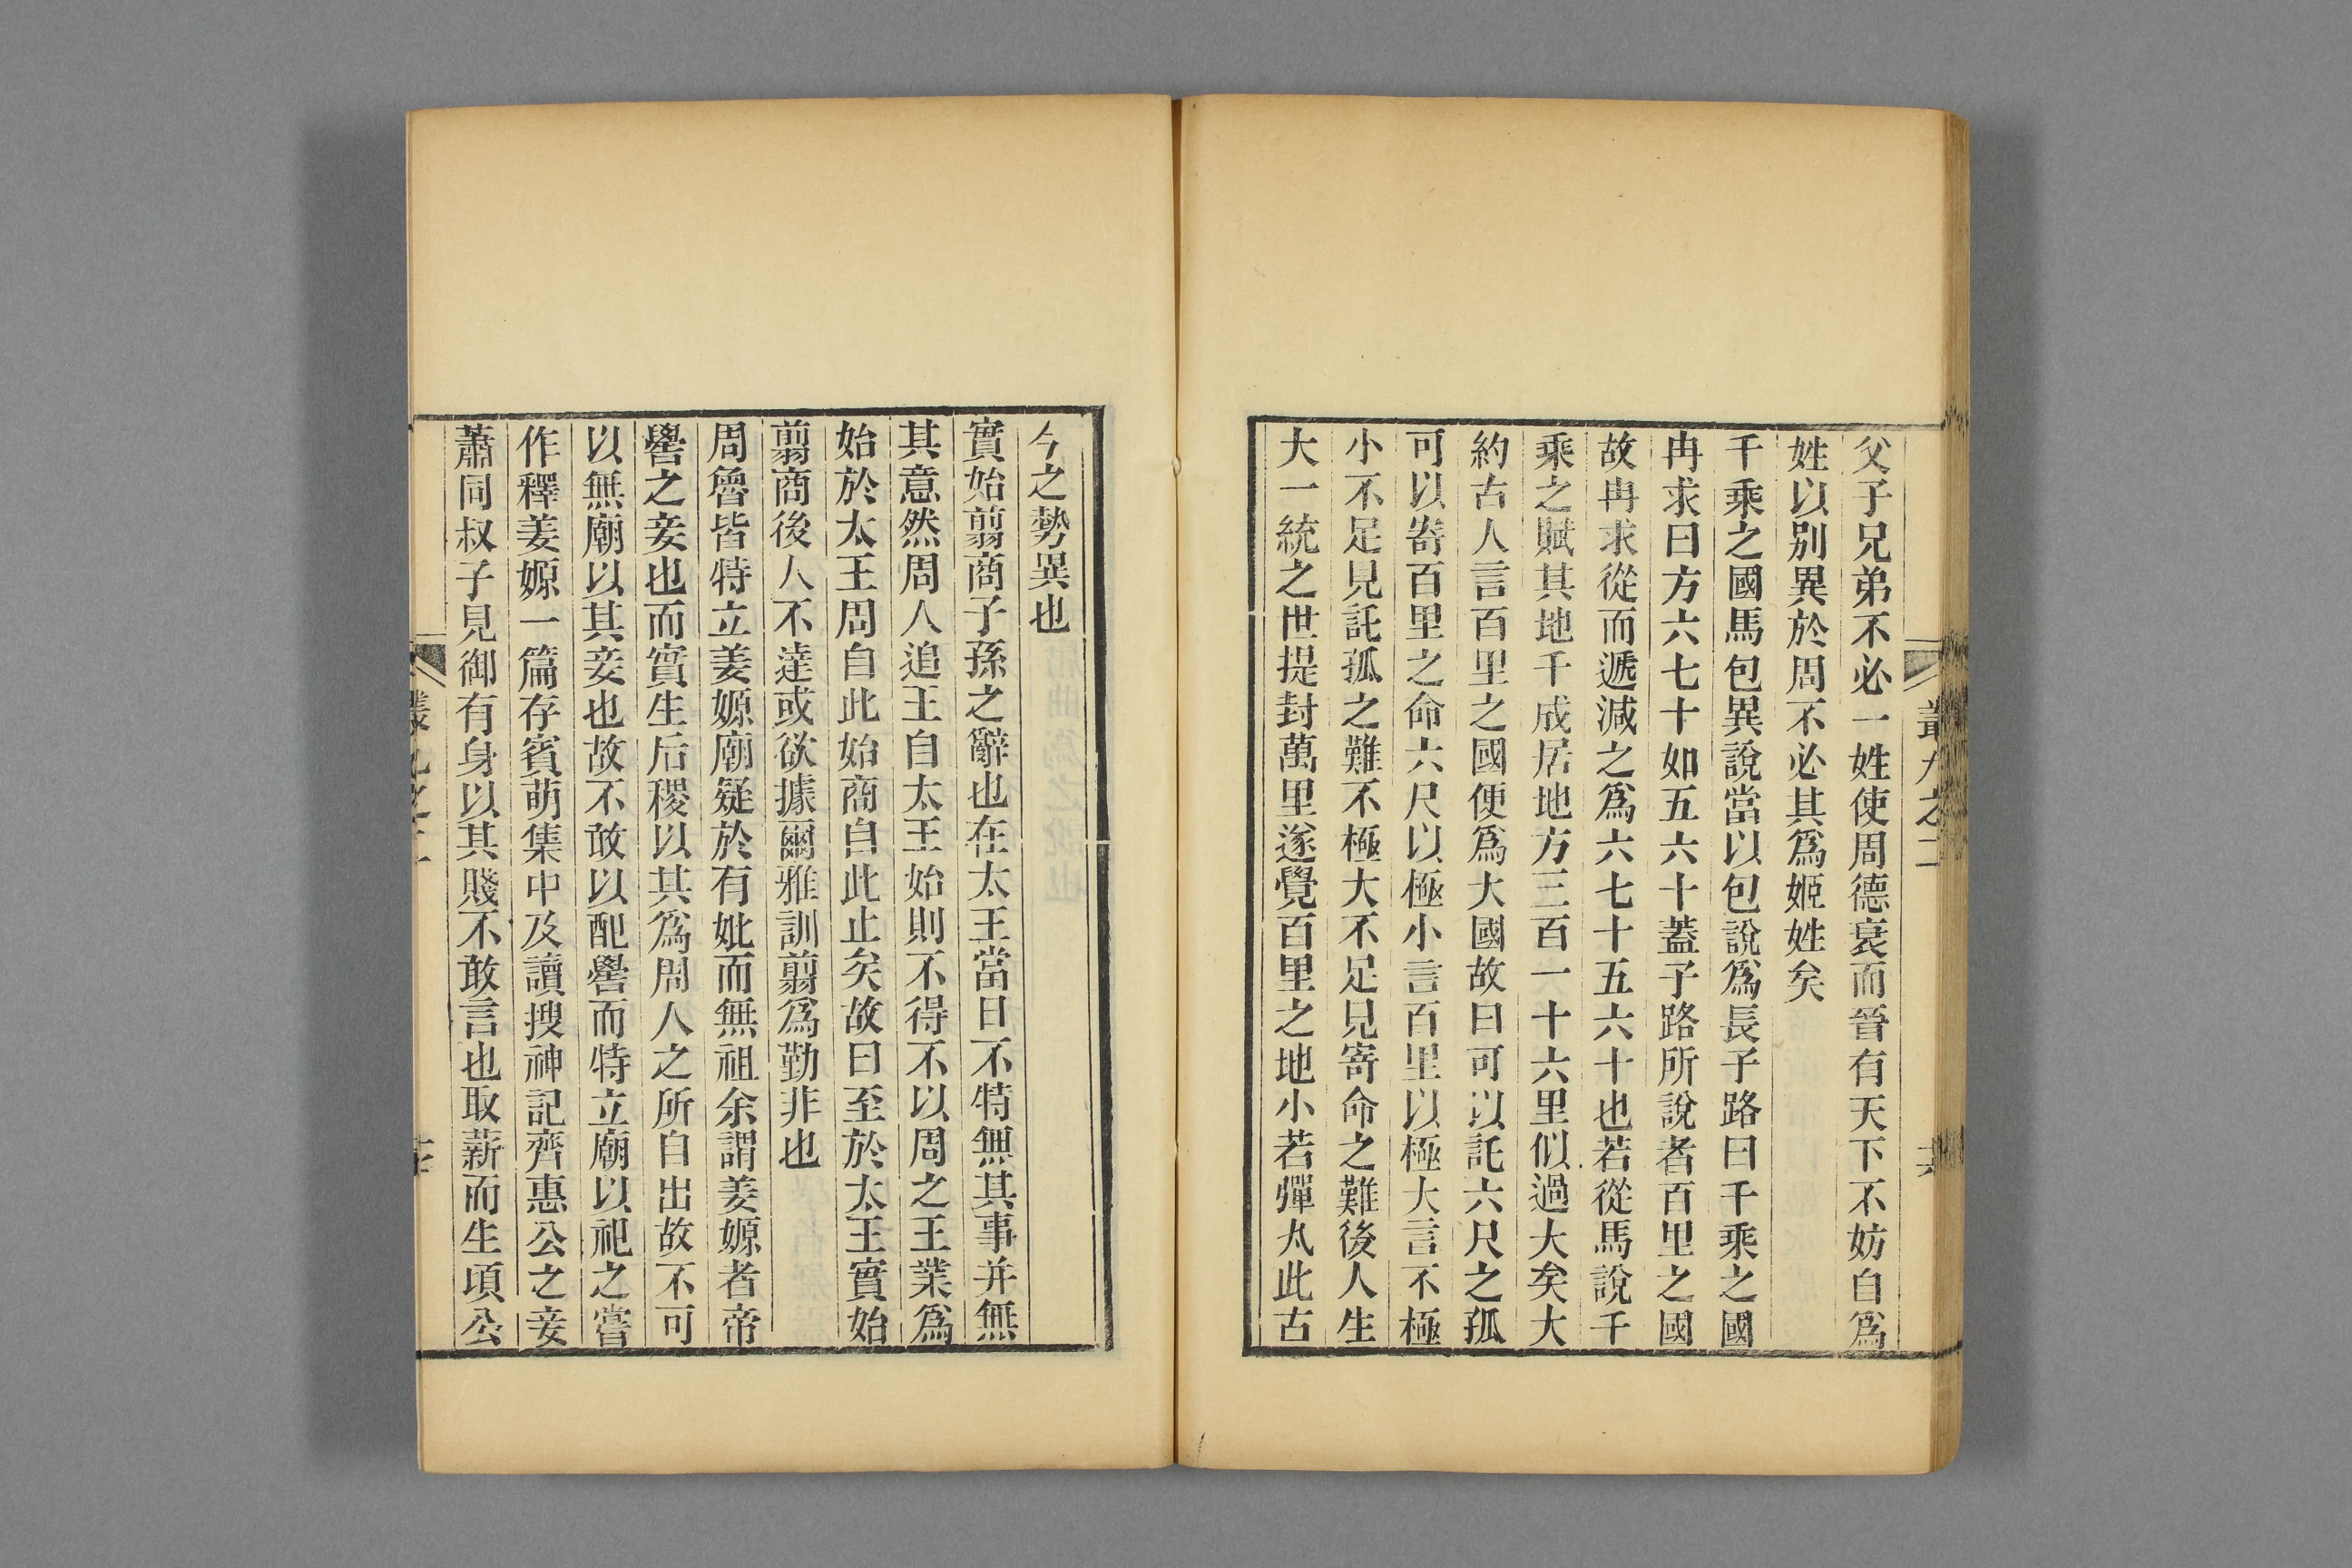 父子兄弟不必一姓使周德衰而晉有天下不妨自爲
姓以別異於周不必其爲姬姓矣
千乘之國馬包異說當以包說爲長子路曰千乘之國
冉求曰方六七十如五六十蓋子路所說者百里之國
故冉求從而遞減之爲六七十五六十也若從馬說千
乘之賦其地千成居地方三百一十六里似過大矣大
約古人言百里之國便爲大國故曰可以託六尺之孤
可以寄百里之命六尺以極小言百里以極大言不極
小不足見託孤之難不極大不足見寄命之難後人生
大一統之世提封萬里遂覺百里之地小若彈丸此古
今之勢異也
實始翦商子孫之辭也在太王當日不特無其事并無
其意然周人追王自太王始則不得不以周之王業爲
始於太王周自此始商自此止矣故曰至於太王實始
翦商後人不達或欲據爾雅訓翦爲勤非也
周魯皆特立姜嫄廟疑於有妣而無祖余謂姜嫄者帝
嚳之妾也而實生后稷以其爲周人之所自出故不可
以無廟以其妾也故不敢以配嚳而特立廟以祀之嘗
作釋姜嫄一篇存賓萌集中及讀搜神記齊惠公之妾
蕭同叔子見御有身以其賤不敢言也取薪而生頃公